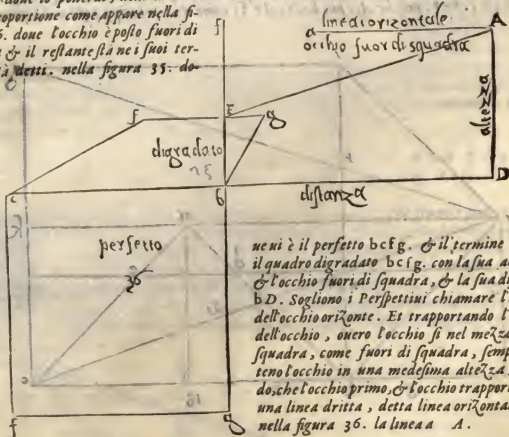 proportione come appare nella fi-
doue l'occhio è posto fuori di
& il restante sta nei suoi ter-
detti. nella figura 35. do-
linea orizontale
a
A
occhio fuor di squadra
f
altezza
E
g
f
digradato
c
b
distanza
D
perfetto
36
f
g
ue ui è il perfetto bcfg. & il termine
il quadro digradato bcfg. con la sua
& l'occhio fuori di squadra, & la sua di
bD. Sogliono i Perspettiui chiamare l'
dell'occhio orizonte. Et trasportando l'
dell'occhio, ouero l'occhio sì nel mezzo
squadra, come fuori di squadra, semp
teno l'occhio in una medesima altezza
do, che l'occhio primo, & l'occhio trasport
una linea dritta, detta linea orizonta
nella figura 36. la linea a A.